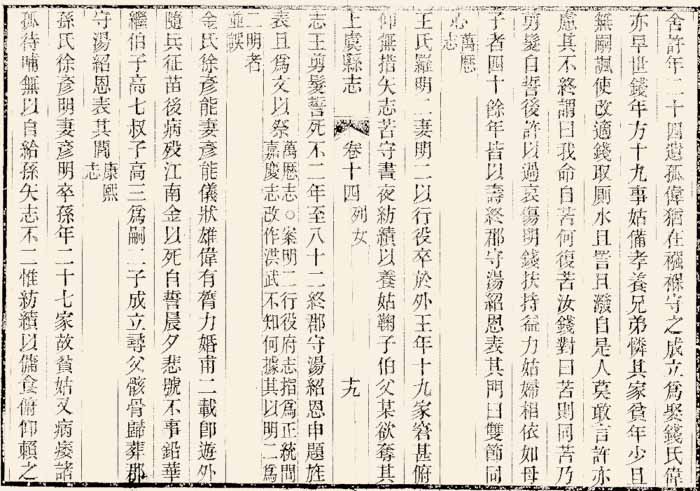 舍許年二十四遺孤偉猶在襁褓守之成立爲娶錢氏偉
亦早世錢年方十九事姑備孝養兄弟憐其家貧年少且
無嗣諷使改適錢取厠水且詈且潑自是人莫敢言許亦
慮其不終謂曰我命自苦何復苦汝錢對曰苦則同苦乃
剪髮自誓後許以過哀傷明錢扶持益力姑婦相依如母
子者四十餘年皆以壽終郡守湯紹恩表其門曰雙節同
心萬歷志
王氏羅明二妻明二以行役卒於外王年十九家窘甚俯
仰無措矢志苦守晝夜紡績以養姑鞠子伯父某欲奪其
上虞縣志 卷十四 列女 十九
志王剪髮誓死不二年至八十二終郡守湯紹恩申題旌
表且爲文以祭萬歷志○案明二行役府志指爲正統間
嘉慶志改作洪武不知何據其以明二爲
二明者
並誤
金氏徐彥能妻彥能儀狀雄偉有膂力婚甫二載卽遊外
隨兵征苗後病歿江南金以死自誓晨夕悲號不事鉛華
繼伯子高七叔子高三爲嗣二子成立尋父骸骨歸葬郡
守湯紹恩表其閭康熙志
孫氏徐彥明妻彥明卒孫年二十七家故貧姑又病痿諸
孤待哺無以自給孫矢志不二惟紡績以傭食俯仰賴之